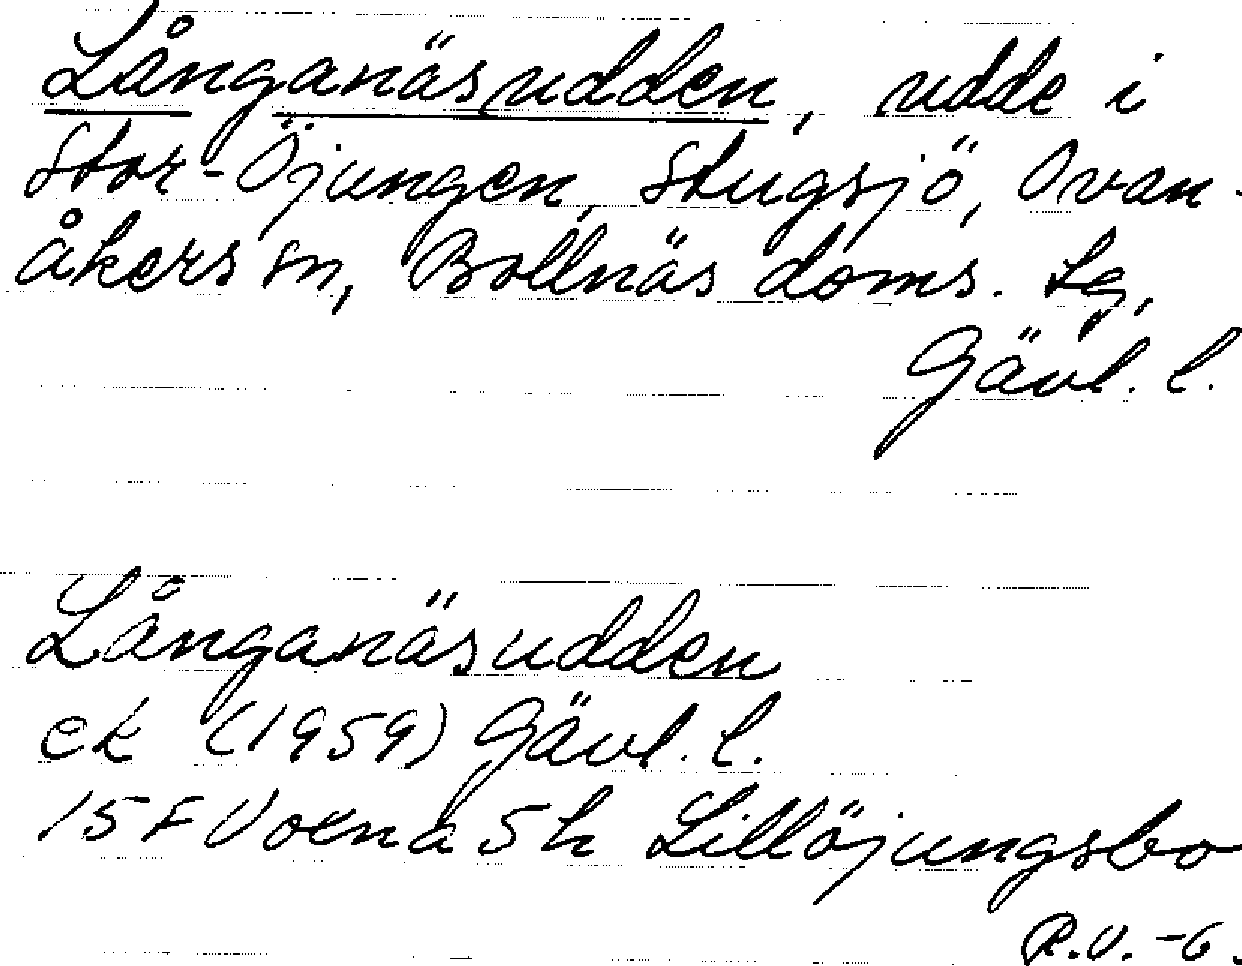 Långanäsudden, udde i
Stor-Öjungen, Stugsjö, Ovan-
åkers sn, Bollnäs doms. Lg,
Gävl. l.
Långanäsudden
ek (1959) Gävl. l.
15F Voxna 5h Lillöjungsbo
R.V. -6.